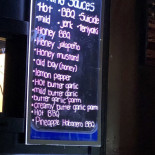 ng Sauces
• Hot • BBQ Suicide
• mild • jerk • teriyaki
• Honey BBQ
• Honey jalapeño
• Honey mustard
• Old bay (honey)
• lemon pepper
• Hot burter garlic
• mild burter garlic
• burter garlic parm
• creamy burter garlic parm
• Hot BBQ
• Pineapple Habanero BBQ